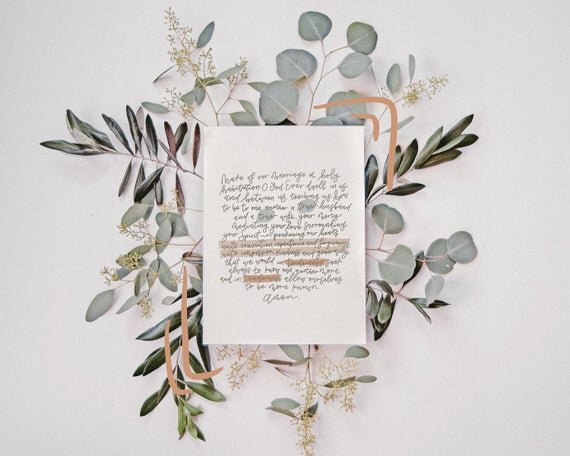 Make of our marriage a holy
habitation O God Ever dwell in us
and between us, teaching us how
to be to one another a truer husband
and a truer wife, your mercy
mediating, your love surrounding,
your Spirit producing our hearts
unto conviction repentance and forgiveness
unto compassion kindness and
that we would in tenderness seek
always to know one another more
and in tenderness allow ourselves
to be more known.
Amen.